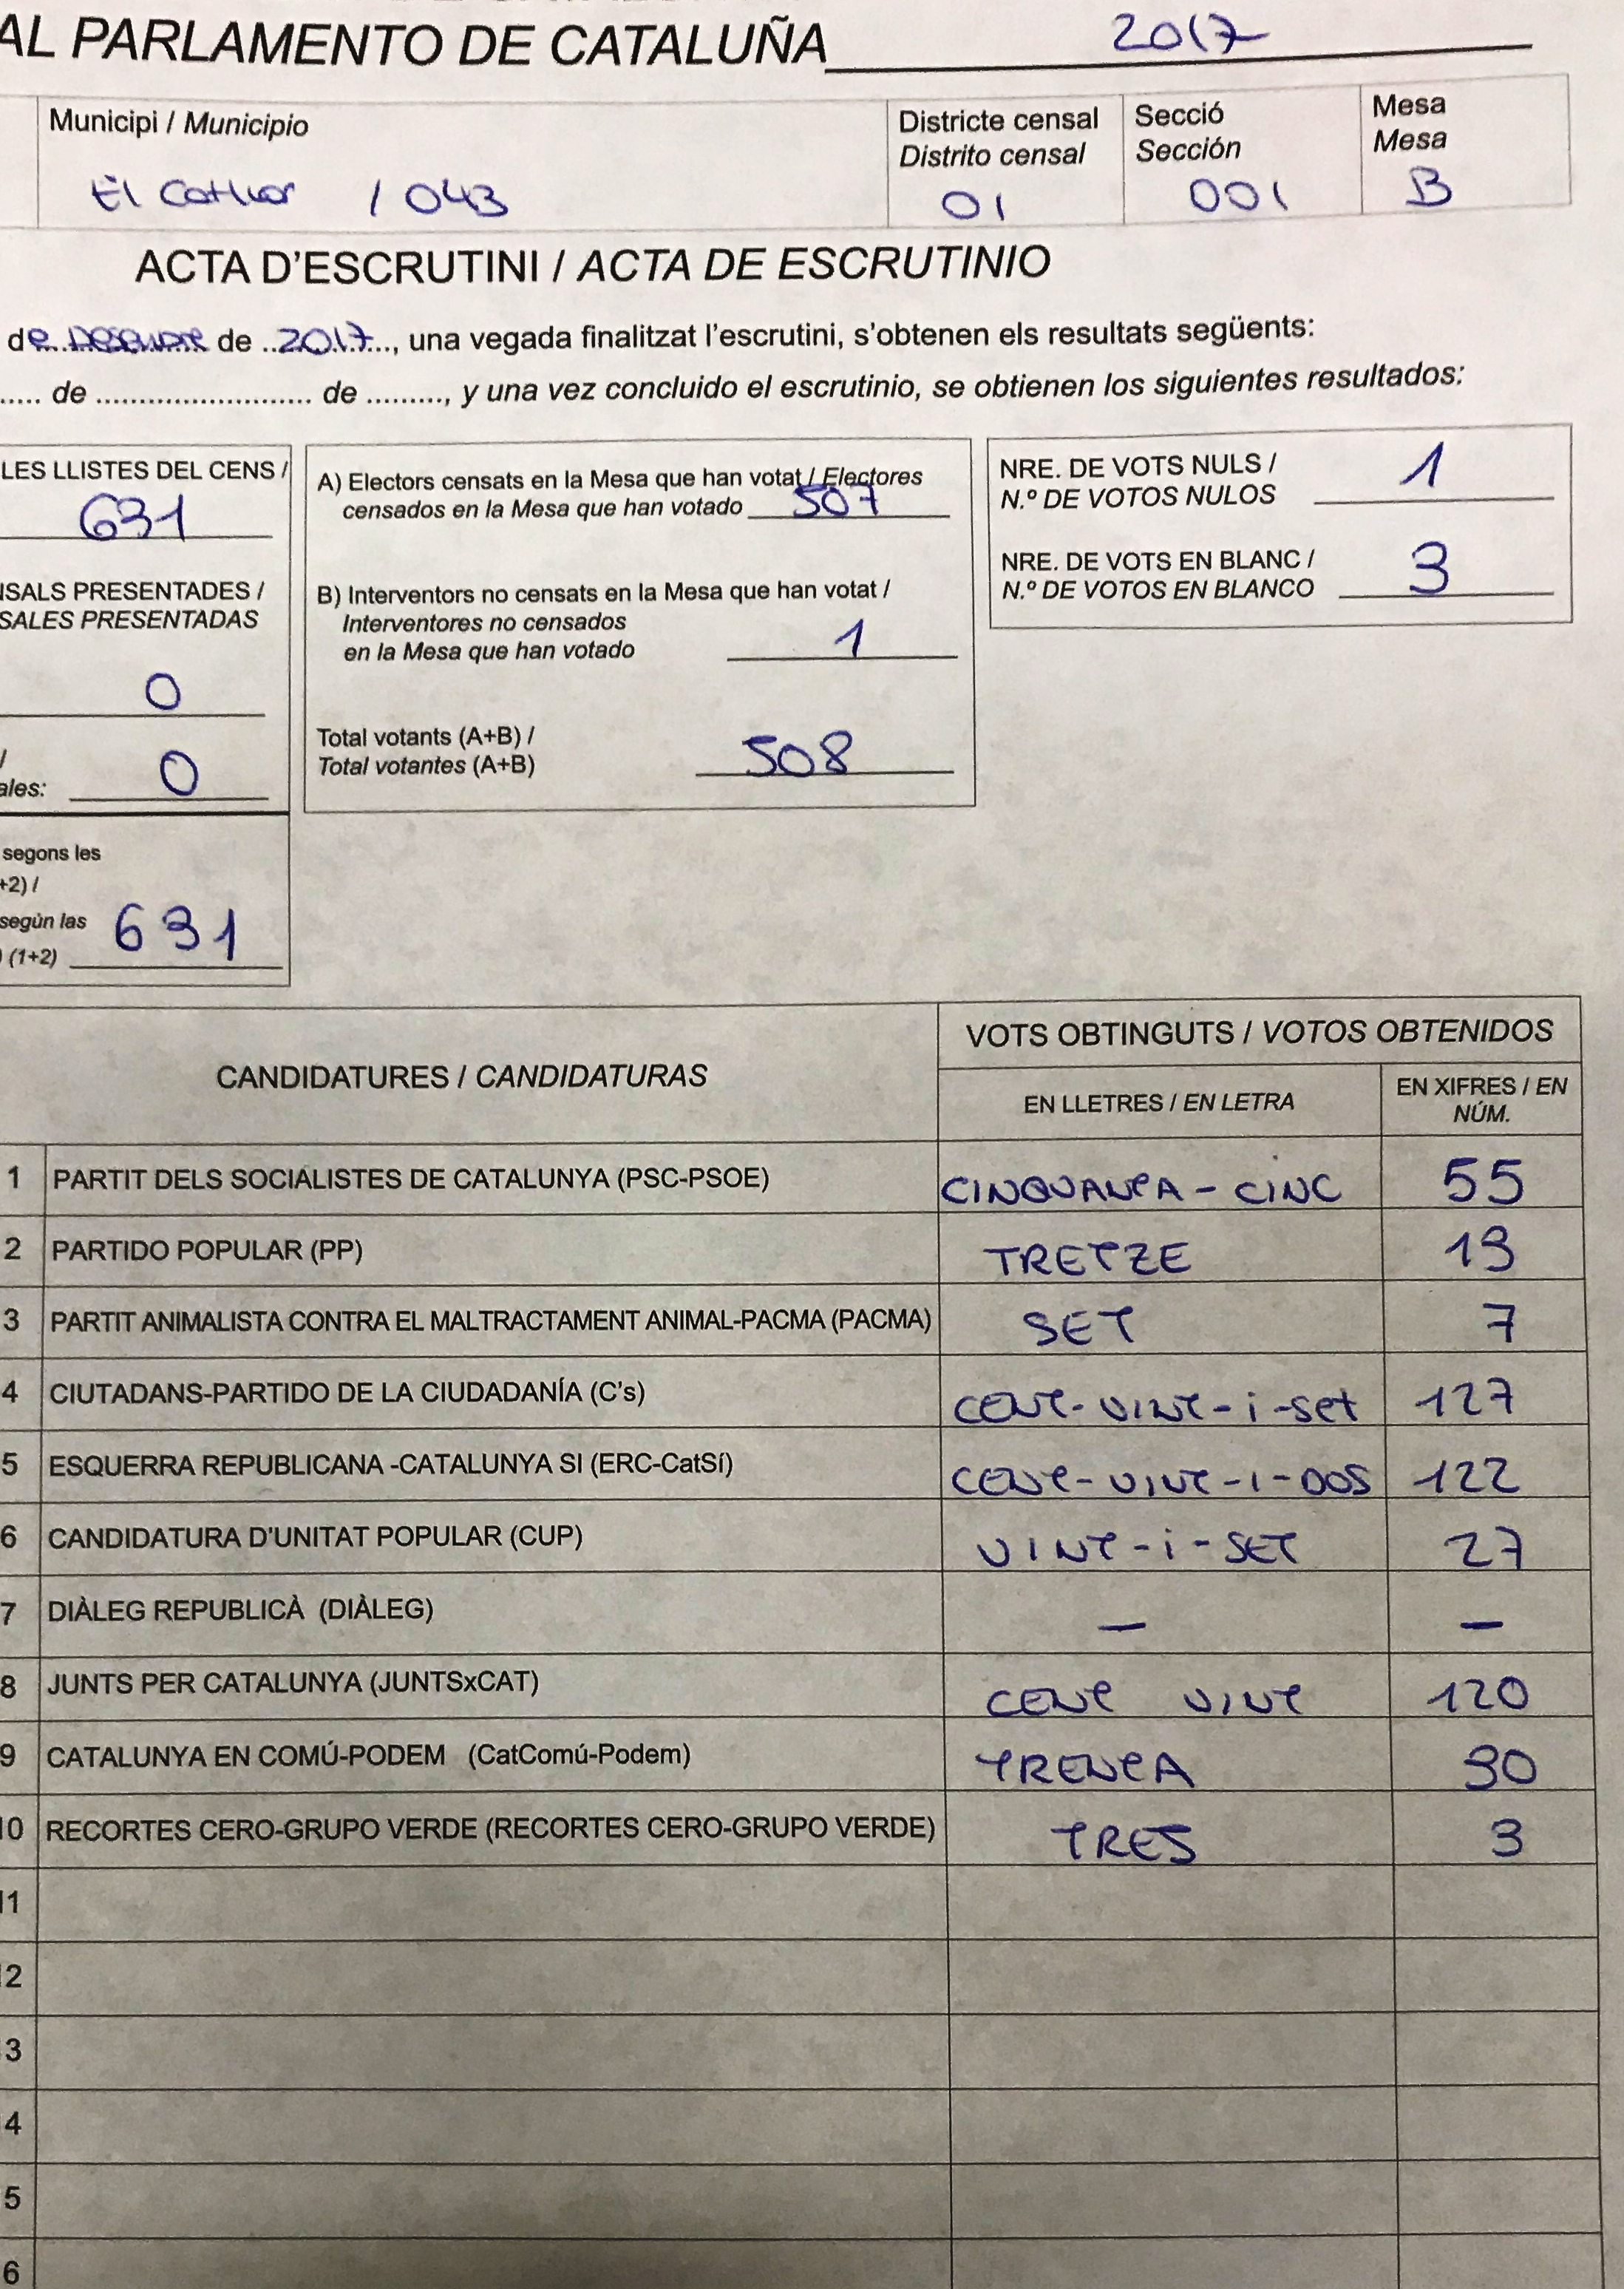 AL PARLAMENTO DE CATALUÑA 2017
Municipi / Municipio
El Catllar / 043
Districte censal
Distrito censal
01
Secció
Sección
001
Mesa
Mesa
B
ACTA D'ESCRUTINI / ACTA DE ESCRUTINIO
de Desembre de 2017, una vegada finalitzat l'escrutini, s'obtenen els resultats següents:
..... de ........................ de ........., y una vez concluido el escrutinio, se obtienen los siguientes resultados:
LES LLISTES DEL CENS /
631
NSALS PRESENTADES /
SALES PRESENTADAS
0
/
ales: 0
segons les
+2) /
según las
(1+2) 631
A) Electors censats en la Mesa que han votat / Electores
censados en la Mesa que han votado 507
B) Interventors no censats en la Mesa que han votat /
Interventores no censados
en la Mesa que han votado 1
Total votants (A+B) /
Total votantes (A+B) 508
NRE. DE VOTS NULS /
N.º DE VOTOS NULOS 1
NRE. DE VOTS EN BLANC /
N.º DE VOTOS EN BLANCO 3
CANDIDATURES / CANDIDATURAS
VOTS OBTINGUTS / VOTOS OBTENIDOS
EN LLETRES / EN LETRA
EN XIFRES / EN
NÚM.
1 PARTIT DELS SOCIALISTES DE CATALUNYA (PSC-PSOE) CINQUANTA - CINC 55
2 PARTIDO POPULAR (PP) TRETZE 13
3 PARTIT ANIMALISTA CONTRA EL MALTRACTAMENT ANIMAL-PACMA (PACMA) SET 7
4 CIUTADANS-PARTIDO DE LA CIUDADANÍA (C's) CENT-VINT-i-set 127
5 ESQUERRA REPUBLICANA -CATALUNYA SI (ERC-CatSí) CENT-VINT-I-DOS 122
6 CANDIDATURA D'UNITAT POPULAR (CUP) VINT-i-SET 27
7 DIÀLEG REPUBLICÀ (DIÀLEG) — —
8 JUNTS PER CATALUNYA (JUNTSxCAT) CENT VINT 120
9 CATALUNYA EN COMÚ-PODEM (CatComú-Podem) TRENTA 30
10 RECORTES CERO-GRUPO VERDE (RECORTES CERO-GRUPO VERDE) TRES 3
11
12
3
4
5
6